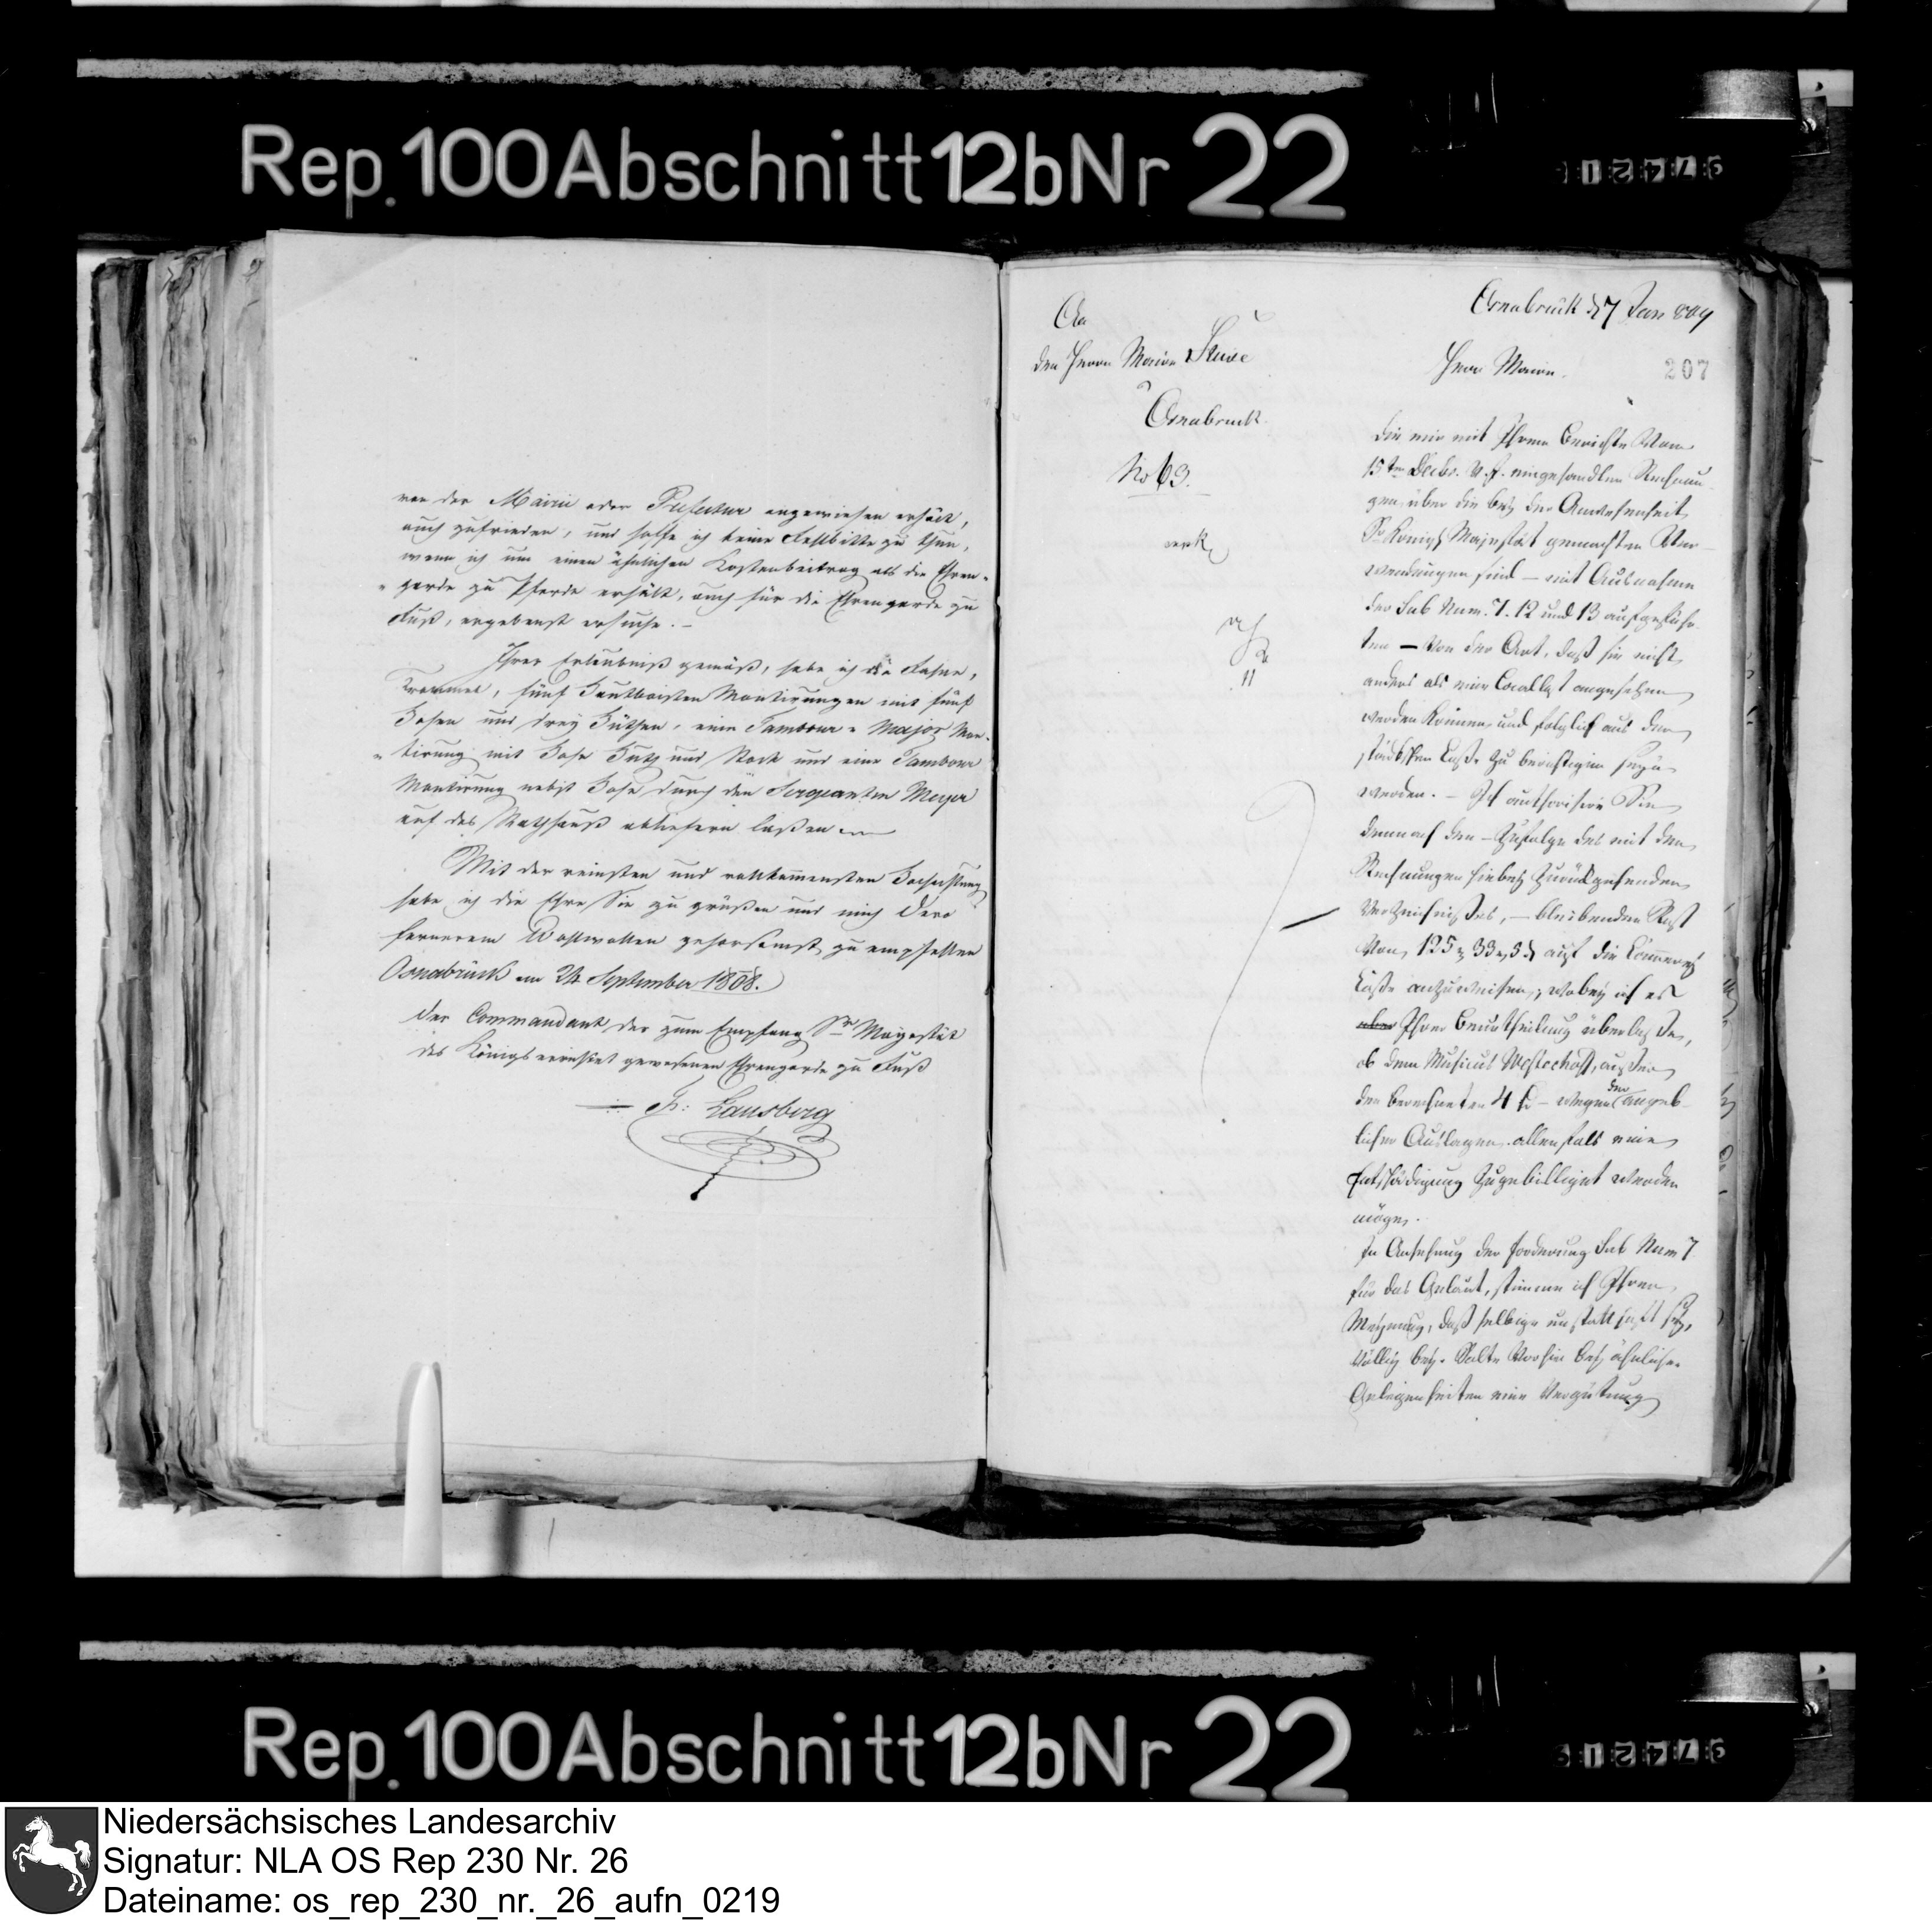 Rep. 100 Abschnitt 12b Nr 22
von der Mairie oder Prefectur angewiesen erhält,
auch zufrieden, und hoffe ich keine Fehlbitte zu thun,
wenn ich um einen ähnlichen Kostenbeitrag als die Ehren-
garde zu Pferde erhält, auch für die Ehrengarde zu
Fuß, ergebenst ersuche. –
Ihrer Erlaubniß gemäß, habe ich die Fahne,
Trommel, fünf Hautboisten Montirungen mit fünf
Hosen und drey Hüthen, eine Tambour-Major Mon-
tirung mit Hose Huth und Stock und eine Tambour
Montirung nebst Hose durch den Sergeanten Meyer
auf das Rathhauß abliefern laßen
Mit der reinsten und vollkommensten Hochachtung
habe ich die Ehre Sie zu grüßen und mich Dero
fernerem Wohlwollen gehorsamst zu empfehlen
Osnabrück am 24 September 1808.
Der Commandant der zum Empfang Sr Mayestät
des Königs errichtet gewesenen Ehrengarde zu Fuß
Lausberg
Osnabrück d 7 Jan 809
An
den Herrn Maire Stüve
Osnabrück
No 63.
207
Herr Maire.
Die mir mit Ihrem Berichte vom
15ten Decbr. v. J. eingesandten Rechnun-
gen über die bey der Anwesenheit
Sr Königl Majestät gemachten Ver-
wendungen sind – mit Ausnahme
der sub Num. 7. 12 und 13 aufgeführ-
ten – von der Art, daß sie nicht
anders als eine Locallast angesehen
werden können, und folglich aus der
städtschen Casse zu berichtigen seyn
werden. – Ich authorisire Sie
demnach den – zufolge des mit den
Rechnungen hiebey zurückgehenden
Verzeichnisses, – bleibenden Rest
von 125 33 3 auf die Cämmerey
Casse anzuweisen; wobey ich es
aber Ihrer Beurtheilung überlasse,
ob dem Musicus außer
den berechneten 4 – wegen der angeb-
lichen Auslagen allenfals eine
Entschädigung zugebilligt werden
möge.
In Ansehung der Forderung sub Num 7
für das Geläut, stimme ich Ihrer
Meynung, daß selbige unstatthaft sey,
völlig bey. Sollte vorhin bey ähnlichen
Gelegenheiten eine Vergütung
Rep. 100 Abschnitt 12b Nr 22
Niedersächsisches Landesarchiv
Signatur: NLA OS Rep 230 Nr. 26
Dateiname: os_rep_230_nr._26_aufn_0219